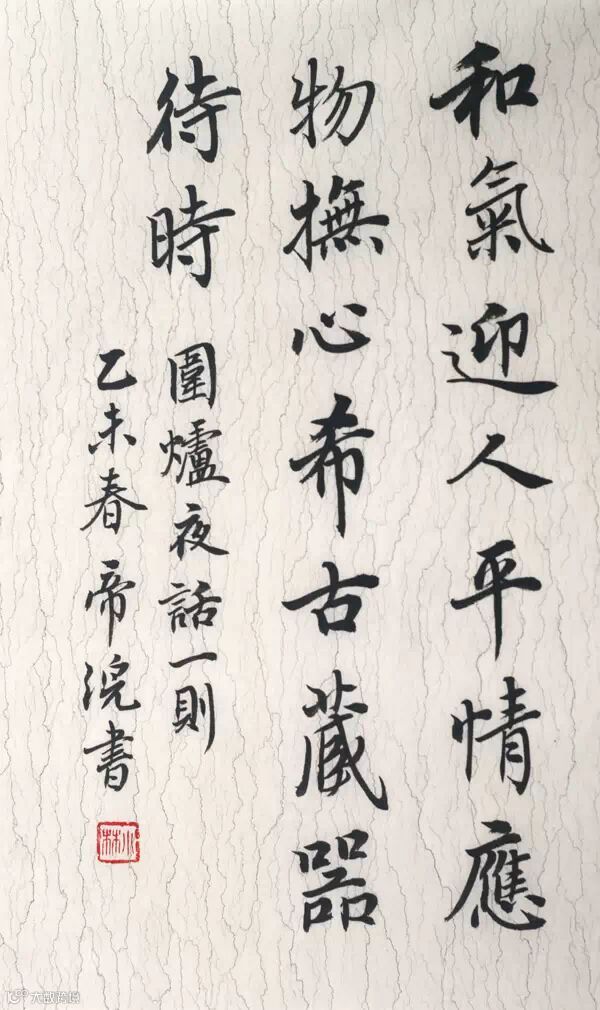 和氣迎人平情應
物撫心希古藏器
待時
圍爐夜話一則
乙未春帝浣書
大数跨境